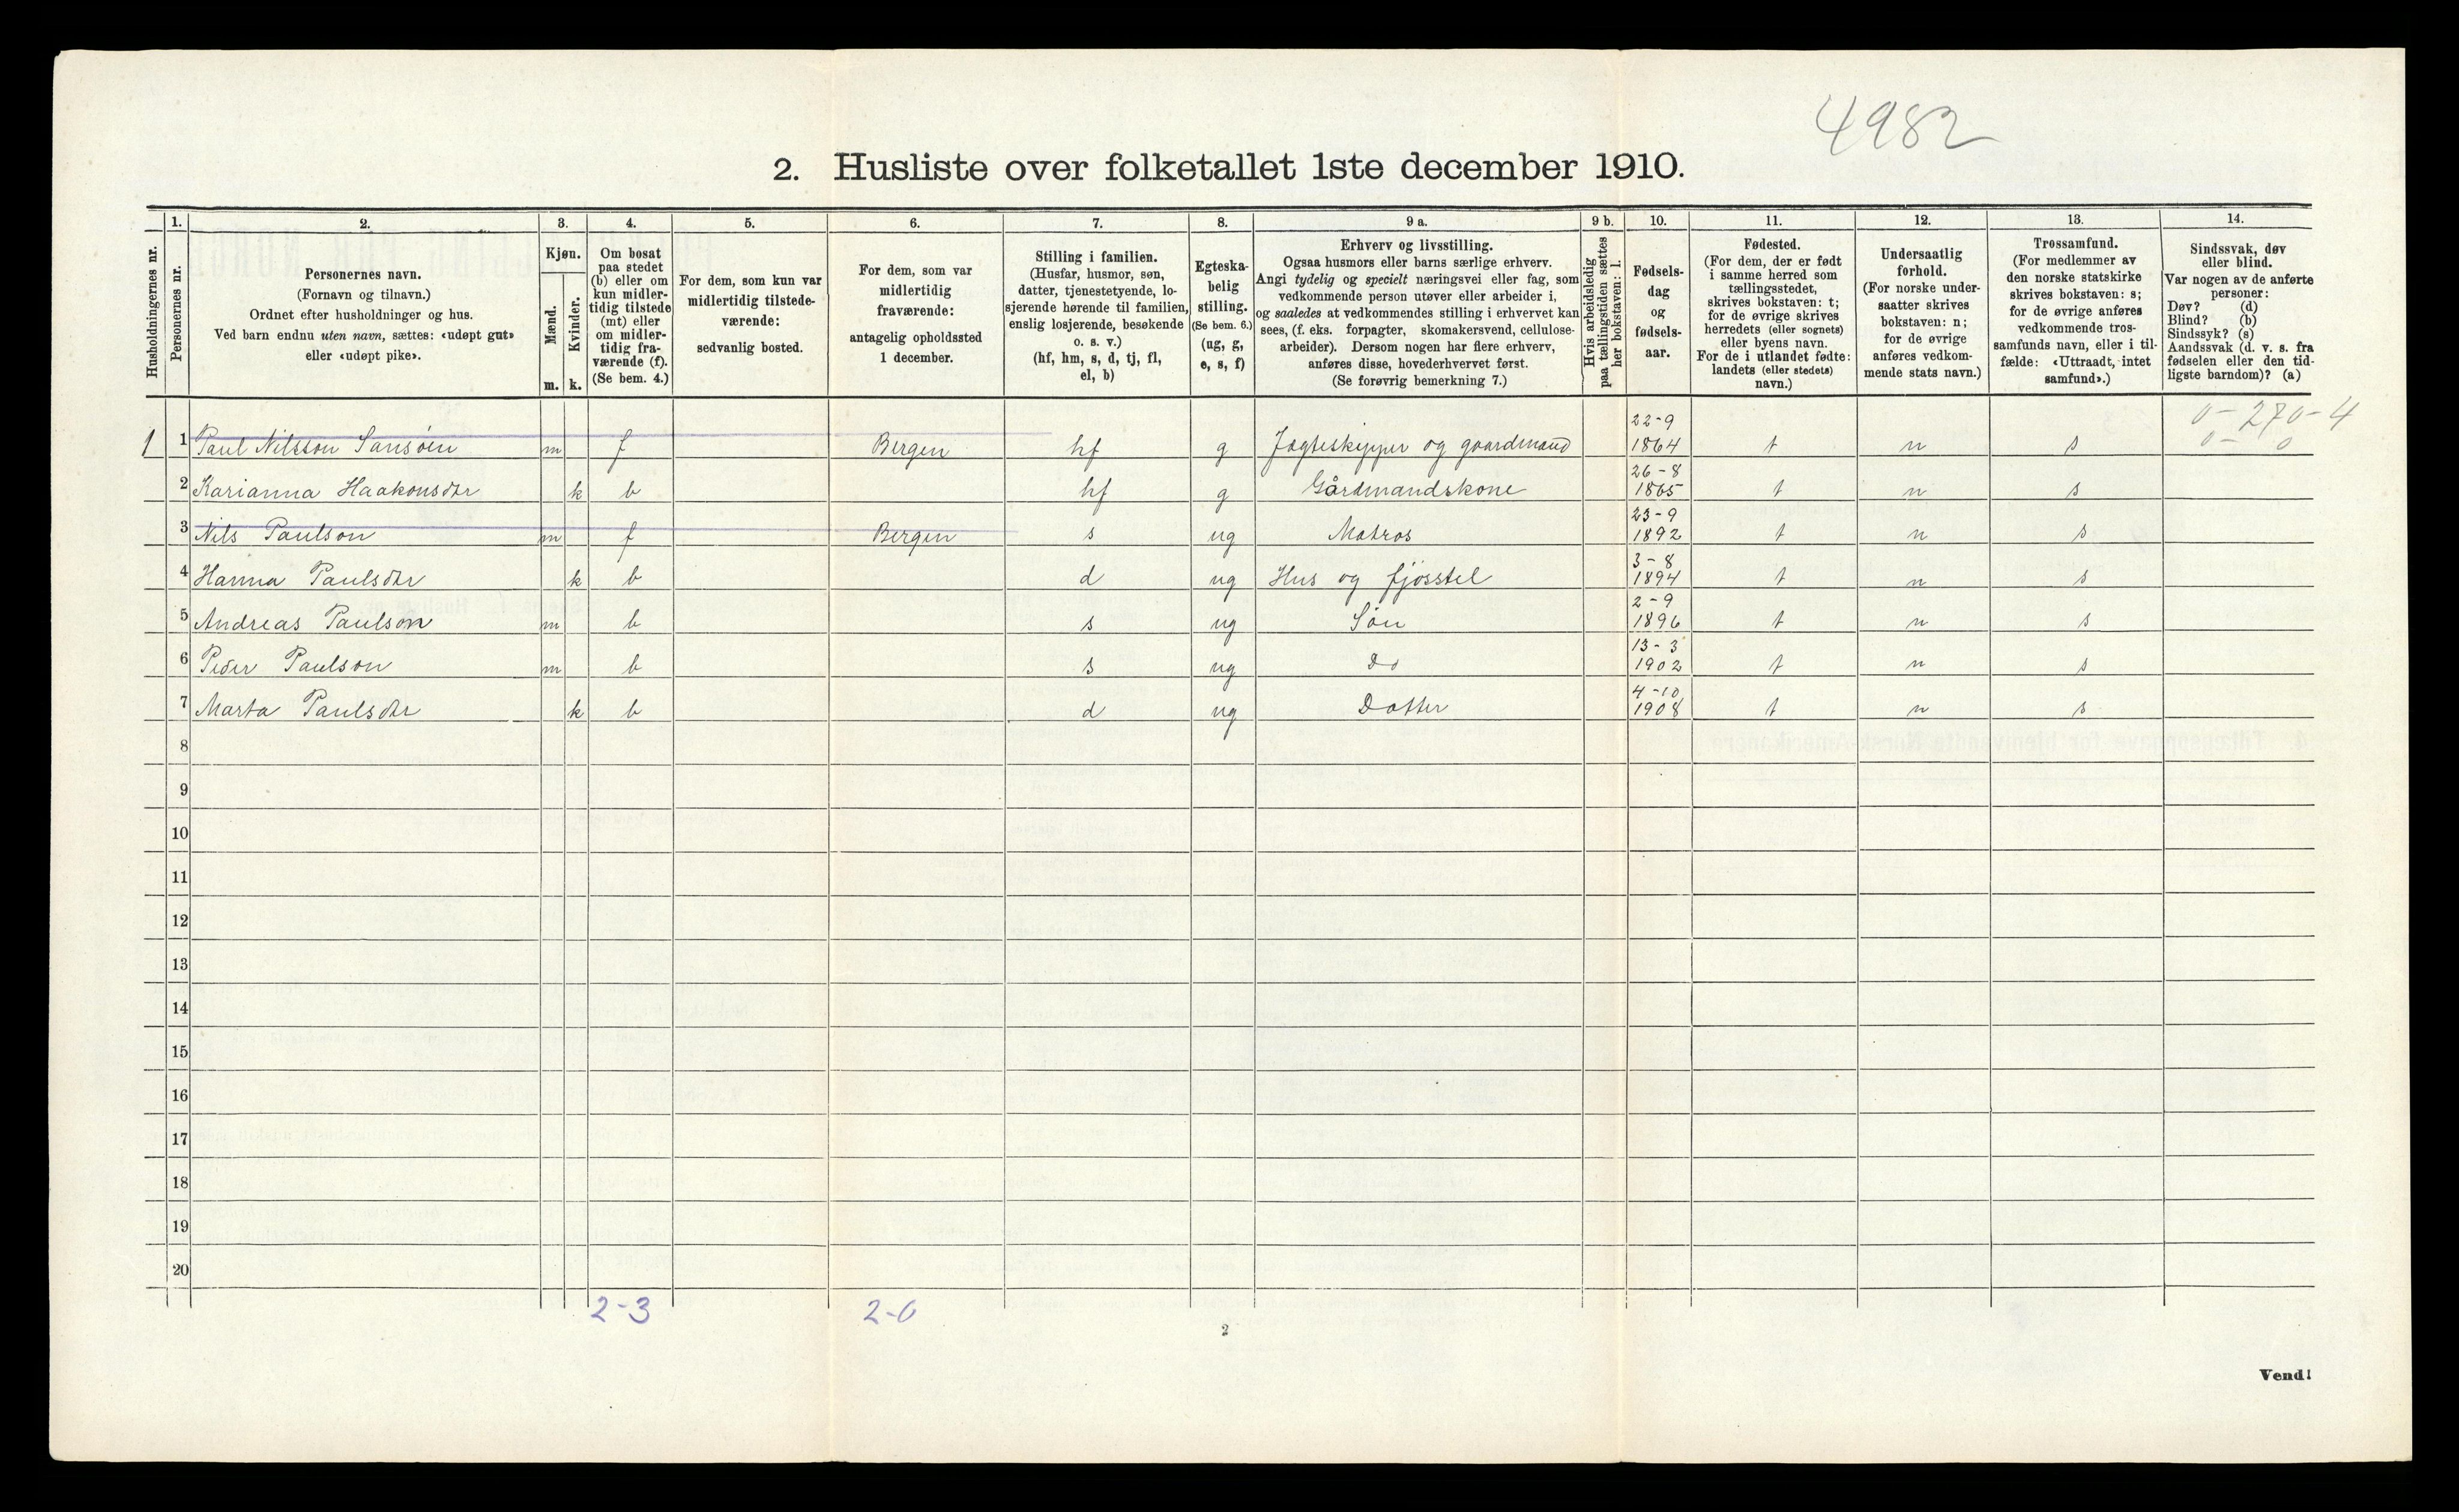 4982
2. Husliste over folketallet 1ste december 1910.
Husholdningernes nr.
1.
Personernes nr.
2.
Personernes navn.
(Fornavn og tilnavn.)
Ordnet efter husholdninger og hus.
Ved barn endnu uten navn, sættes: «udøpt gut»
eller «udøpt pike».
3.
Kjøn.
Mænd.
m.
Kvinder.
k.
4.
Om bosat
paa stedet
(b) eller om
kun midler-
tidig tilstede
(mt) eller
om midler-
tidig fra-
værende (f).
(Se bem. 4.)
5.
For dem, som kun var
midlertidig tilstede-
værende:
sedvanlig bosted.
6.
For dem, som var
midlertidig
fraværende:
antagelig opholdssted
1 december.
7.
Stilling i familien.
(Husfar, husmor, søn,
datter, tjenestetyende, lo-
sjerende hørende til familien,
enslig losjerende, besøkende
o. s. v.)
(hf, hm, s, d, tj, fl,
el, b)
8.
Egteska-
belig
stilling.
(Se bem. 6.)
(ug, g,
e, s, f)
9 a.
Erhverv og livsstilling.
Ogsaa husmors eller barns særlige erhverv.
Angi tydelig og specielt næringsvei eller fag, som
vedkommende person utøver eller arbeider i,
og saaledes at vedkommendes stilling i erhvervet kan
sees, (f. eks. forpagter, skomakersvend, cellulose-
arbeider). Dersom nogen har flere erhverv,
anføres disse, hovederhvervet først.
(Se forøvrig bemerkning 7.)
9 b.
Hvis arbeidsledig
paa tællingstiden sættes
her bokstaven: l.
10.
Fødsels-
dag
og
fødsels-
aar.
11.
Fødested.
(For dem, der er født
i samme herred som
tællingsstedet,
skrives bokstaven: t;
for de øvrige skrives
herredets (eller sognets)
eller byens navn.
For de i utlandet fødte:
landets (eller stedets)
navn.)
12.
Undersaatlig
forhold.
(For norske under-
saatter skrives
bokstaven: n;
for de øvrige
anføres vedkom-
mende stats navn.)
13.
Trossamfund.
(For medlemmer av
den norske statskirke
skrives bokstaven: s;
for de øvrige anføres
vedkommende tros-
samfunds navn, eller i til-
fælde: «Uttraadt, intet
samfund».)
14.
Sindssvak, døv
eller blind.
Var nogen av de anførte
personer:
Døv? (d)
Blind? (b)
Sindssyk? (s)
Aandssvak (d. v. s. fra
fødselen eller den tid-
ligste barndom)? (a)
0-270-4
0- 0
1 1 Paul Nilsson Sansøen m f Bergen hf g Jægteskipper og gaardmand 22-9 1864 t n s
2 Karianna Haakonsdtr k b hf g Gårdmandskone 26-8 1865 t n s
3 Nils Paulson m f Bergen s ug Matros 23-9 1892 t n s
4 Hanna Paulsdtr k b d ug Hus og fjosstel 3-8 1894 t n s
5 Andreas Paulson m b s ug Søn 2-9 1896 t n s
6 Peder Paulson m b s ug Do 13-3 1902 t n s
7 Marta Paulsdtr k b d ug Datter 4-10 1908 t n s
8
9
10
11
12
13
14
15
16
17
18
19
20
2-3 2-0
2
Vend!